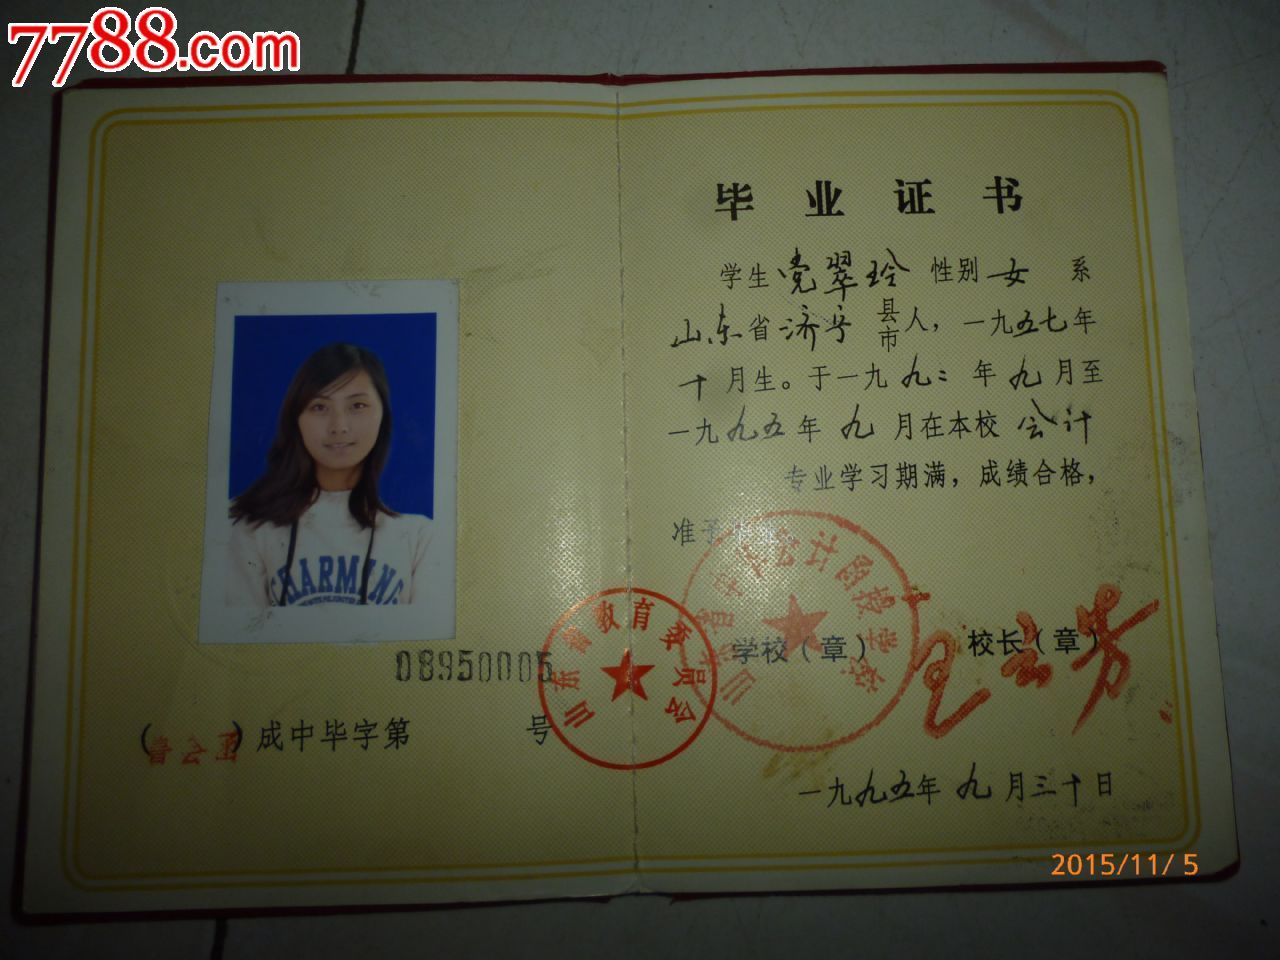 7788.com
毕业证书
学生党翠玲性别女系
山东省济宁县市人，一九五七年
十月生。于一九九二年九月至
一九九五年九月在本校会计
专业学习期满，成绩合格，
准予
CHARMING
学校（章）
校长（章）
山东省教育委员会
08950005
成中毕字第 号
一九九五年九月三十日
2015/11/5